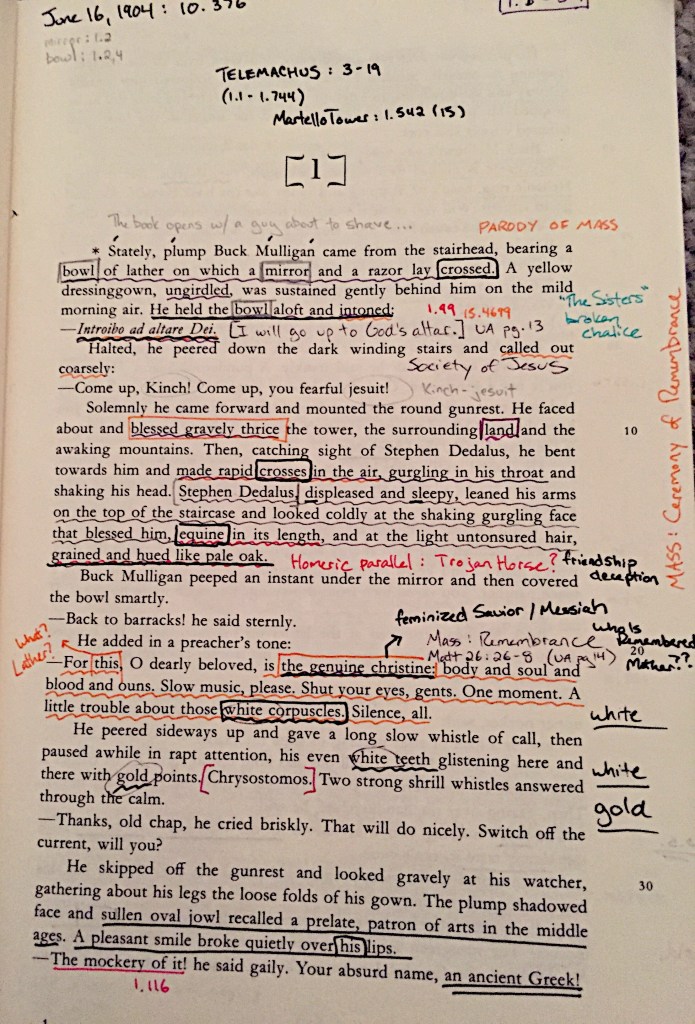 June 16, 1904 : 10. 376
mirror : 1.2
bowl : 1.2, 4
TELEMACHUS : 3 - 19
(1.1 - 1.744)
Martello Tower : 1.542 (15)
[1]
The book opens w/ a guy about to shave...
PARODY OF MASS
* Stately, plump Buck Mulligan came from the stairhead, bearing a
bowl of lather on which a mirror and a razor lay crossed. A yellow
dressinggown, ungirdled, was sustained gently behind him on the mild
morning air. He held the bowl aloft and intoned:
1.99 15.4699
"The Sisters"
broken
chalice
—Introibo ad altare Dei. [I will go up to God's altar.] UA pg. 13
Halted, he peered down the dark winding stairs and called out
coarsely:
Society of Jesus
—Come up, Kinch! Come up, you fearful jesuit!
Kinch - jesuit
Solemnly he came forward and mounted the round gunrest. He faced
about and blessed gravely thrice the tower, the surrounding land and the
10
awaking mountains. Then, catching sight of Stephen Dedalus, he bent
towards him and made rapid crosses in the air, gurgling in his throat and
shaking his head. Stephen Dedalus, displeased and sleepy, leaned his arms
on the top of the staircase and looked coldly at the shaking gurgling face
that blessed him, equine in its length, and at the light untonsured hair,
grained and hued like pale oak.
Homeric parallel : Trojan Horse? friendship
deception
MASS: Ceremony of Remembrance
Buck Mulligan peeped an instant under the mirror and then covered
the bowl smartly.
—Back to barracks! he said sternly.
feminized Savior / Messiah
He added in a preacher's tone:
Mass : Remembrance
Who Is
Remembered
Mother??
Matt 26:26-8 (UA pg 14)
20
What?
Lather?
—For this, O dearly beloved, is the genuine christine: body and soul and
blood and ouns. Slow music, please. Shut your eyes, gents. One moment. A
little trouble about those white corpuscles. Silence, all.
white
He peered sideways up and gave a long slow whistle of call, then
paused awhile in rapt attention, his even white teeth glistening here and
white
there with gold points. [Chrysostomos.] Two strong shrill whistles answered
gold
through the calm.
—Thanks, old chap, he cried briskly. That will do nicely. Switch off the
current, will you?
He skipped off the gunrest and looked gravely at his watcher,
30
gathering about his legs the loose folds of his gown. The plump shadowed
face and sullen oval jowl recalled a prelate, patron of arts in the middle
ages. A pleasant smile broke quietly over his lips.
—The mockery of it! he said gaily. Your absurd name, an ancient Greek!
1.116